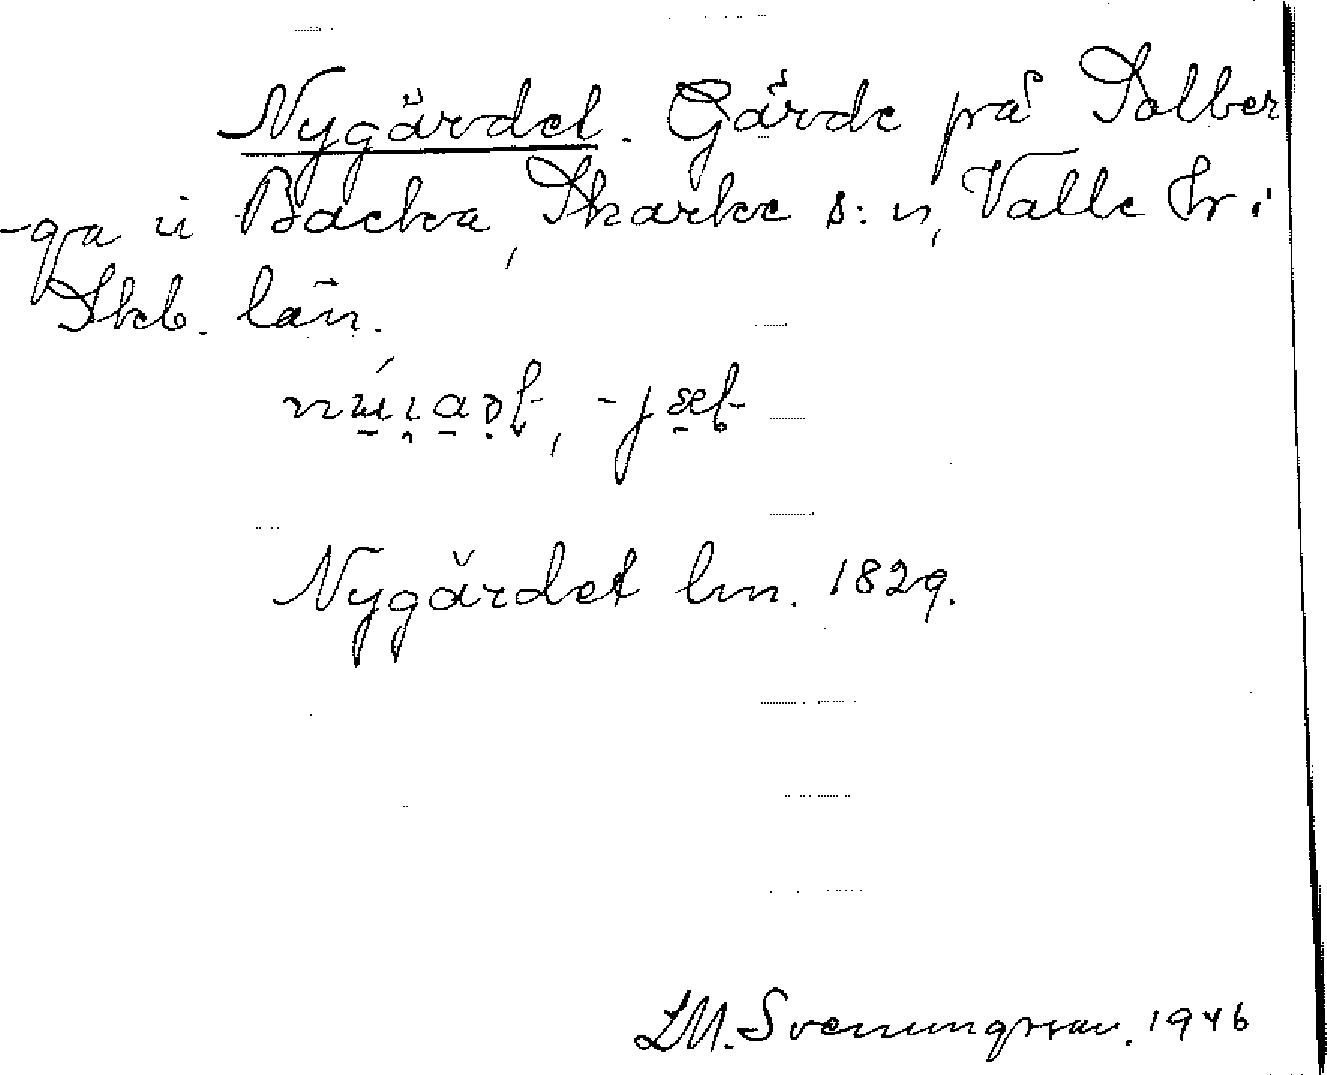 Nygärdet. Gärde på Solber
-ga i Backa, Skarke s:n, Valle hr i
Skb. län.
Nygärdet lm. 1829.
L.M. Svenungsson. 1946